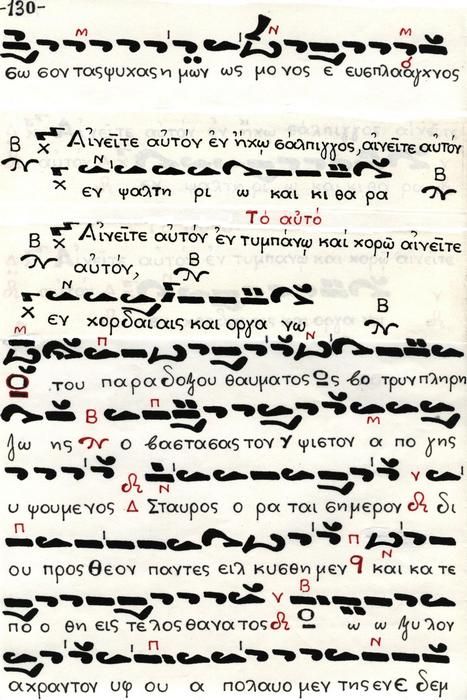 -130-
σω σον τας ψυχας η μων ως μο νος ε ευσπλααγχνος
Αἰνεῖτε αὐτὸν ἐν ἤχῳ σάλπιγγος, αἰνεῖτε αυτον
εν ψαλτη ρι ω και κι θα ρα
Τό αὐτό
Αἰνεῖτε αὐτὸν ἐν τυμπάνῳ καί χορῷ αἰνεῖτε
αὐτόν,
εν χορδαι αις και οργα νω
Ω του παρα δοξου θαυματος Ως βο τρυν πληρη
ζω ης ο βαστασας τον υ ψιστον α πο γης
υ ψουμενος Δ Σταυρος ο ρα ται σημερον δι
ου προς Θεον παντες ειλ κυσθη μεν και κα τε
πο ο θη εις τελος θανατος ω ω ξυλον
αχραντον υφ ου α πολαυο μεν της εν Ε δεμ